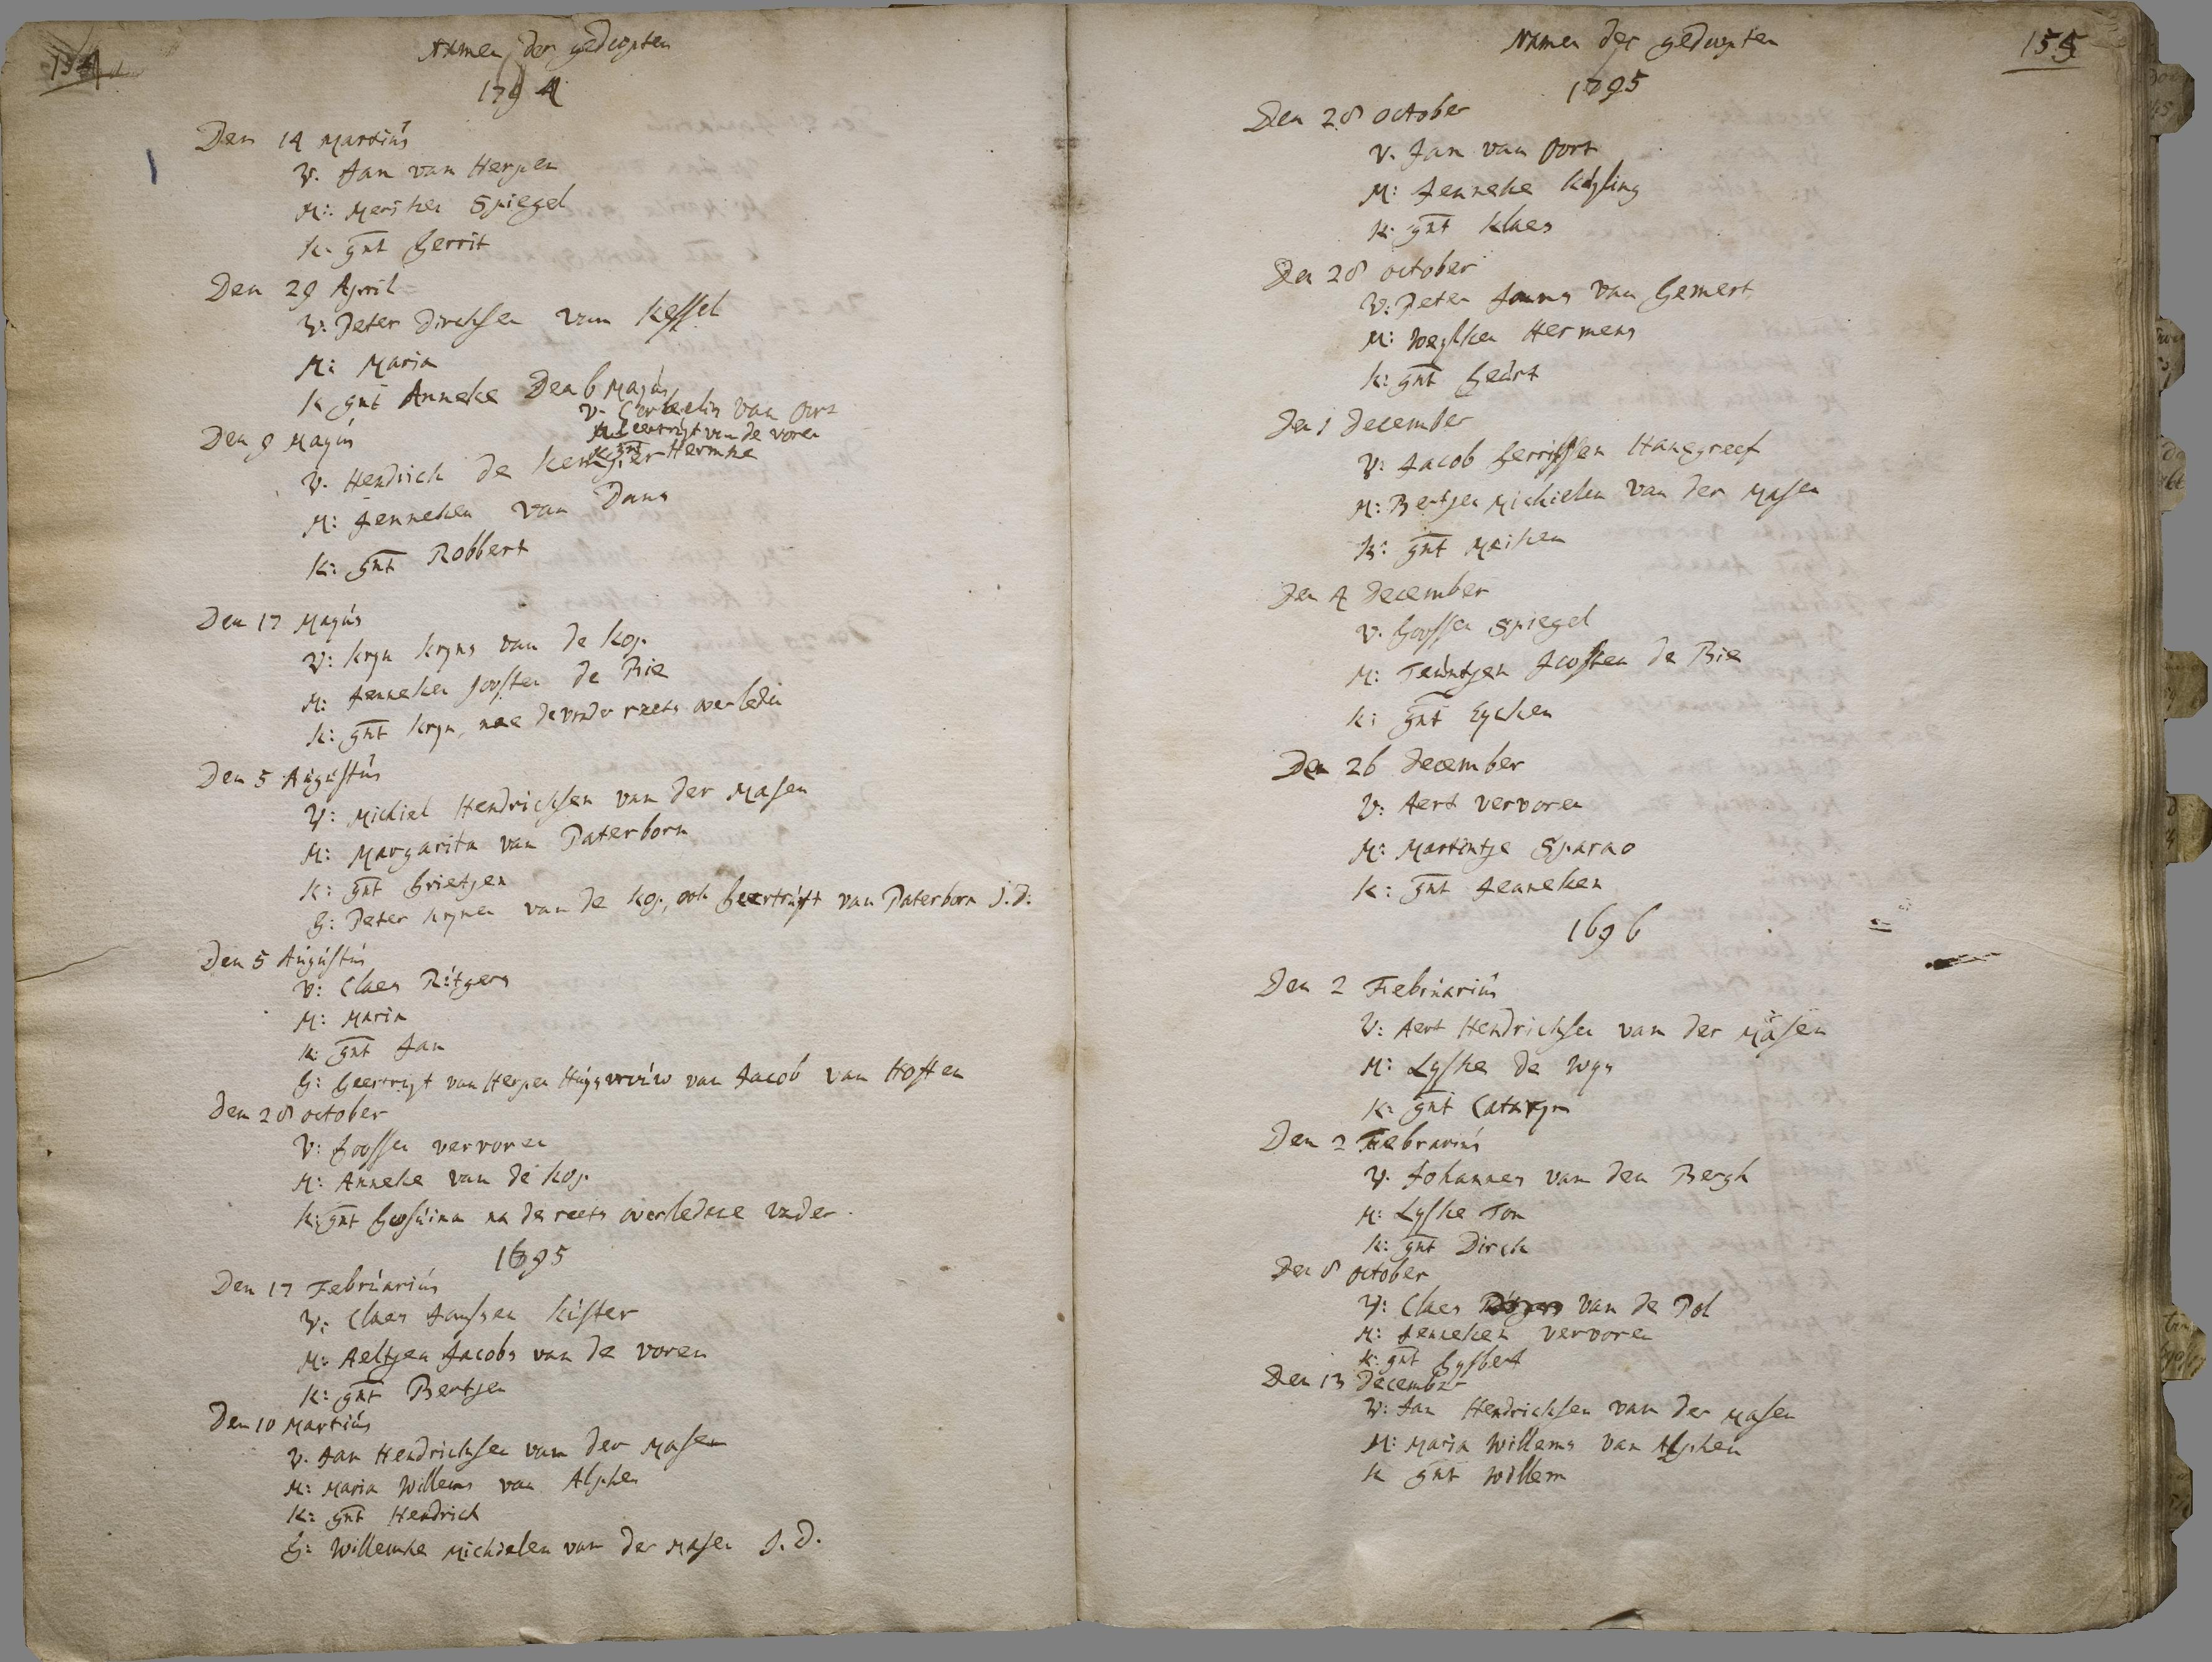 154
Namen der gedoopten
1794
Den 14 Martius
V. Jan van Herpen
M: Meriken Spiegel
K. gnt Gerrit
Den 29 April
V: Peter Dircksen van Kessel
M: Maria
K gnt Anneke
Den 6 Majus
V. Cornelis van Oort
M. Geertruyt van de Voren
K gnt Hermke
Den 9 Mayus
V. Hendrick de
M: Jenneken van Dans
K: gnt Robbert
Den 17 Mayus
V: Kryn Kryns van de Kop.
M: Jenneken Joosten de Bie
K: gnt Kryn, nae de vader reets overleden
Den 5 Augustus
V: Michiel Hendricksen van der Masen
M: Margarita van Paterborn
K: gnt Grietjen
G: Peter Krynen van de Kop, ook Geertruyt van Paterborn J.D.
Den 5 Augustus
V: Claes Rutgers
M: Maria
K: gnt Jan
G: Geertruyt van Herpen Huysvrouw van Jacob van Hoften
Den 28 october
V: Goossen vervoren
M: Anneke van de Kop.
K: gnt Goosuina na de reets overledene vader.
1695
Den 17 Februarius
V: Claes Janssen Kuster
M: Aeltjen Jacobs van de Voren
K: gnt Bertjen
Den 10 Martius
V. Jan Hendricksen van der Masen
M: Maria Willems van Alphen
K: gnt Hendrick
G: Willemke Michielen van der Masen J.D.
155
Namen der gedoopten
1795
Den 28 october
V. Jan van Oort
M: Jenneke
K: gnt Klaes
Den 28 october
V: Peter Jouns van Gemert
M: Weylken Hermens
K: gnt Geurt
Den 1 December
V: Jacob Gerritsen Hanegreef
M: Bentjen Michielen van der Masen
K: gnt Meiken
Den 4 December
V. Goossen Spiegel
M: Teuntjen Joosten de Bie
K: gnt Eycken
Den 26 December
V: Aert vervoren
M: Martintje Sparao
K: gnt Jenneken
1696
Den 2 Februarius
V: Aert Hendricksen van der Masen
M: Lyske de Wys
K: gnt Cataryn
Den 2 Februarius
V. Johannes van den Bergh
M: Lyske Ton
K: gnt Dirck
Den 8 October
V: Claes van de Pol
M: Jenneken vervoren
K: gnt Gysbert
Den 13 December
V: Jan Hendricksen van der Masen
M: Maria Willems van Alphen
K gnt Willem